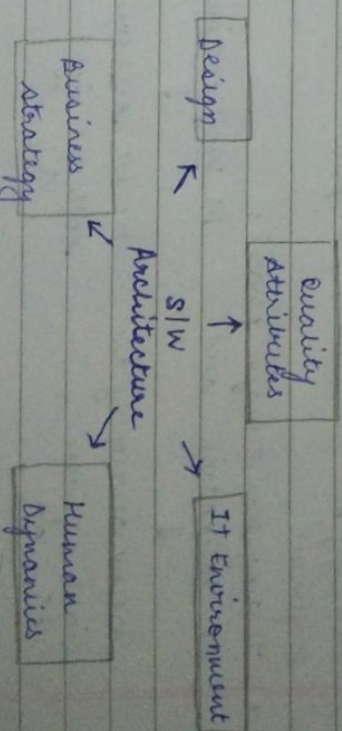 Quality
Attributes
Design
It Environment
S/W
Architecture
Business
strategy
Human
Dynamics